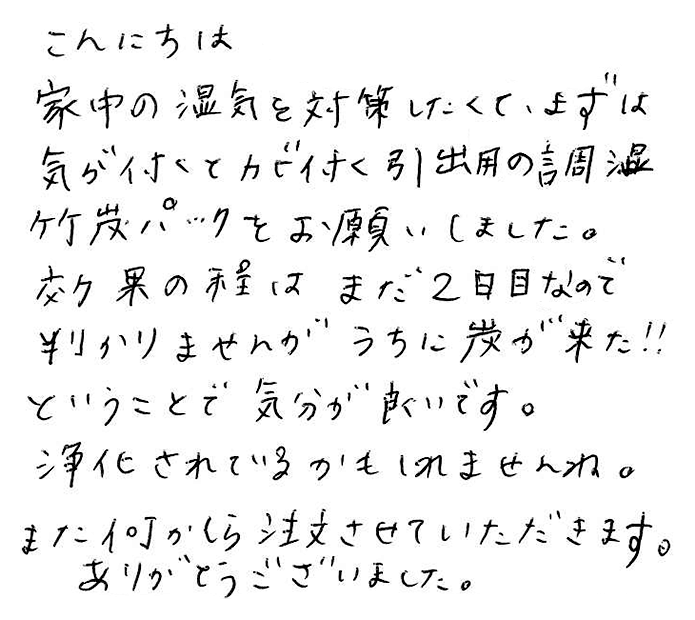 こんにちは
家中の湿気を対策したくて、まずは
気が付くとカビ付く引出用の調湿
竹炭パックをお願いしました。
効果の程は まだ2日目なので
判かりませんが うちに炭が来た!!
ということで 気分が良いです。
浄化されているかもしれませんね。
また何かしら注文させていただきます。
ありがとうございました。